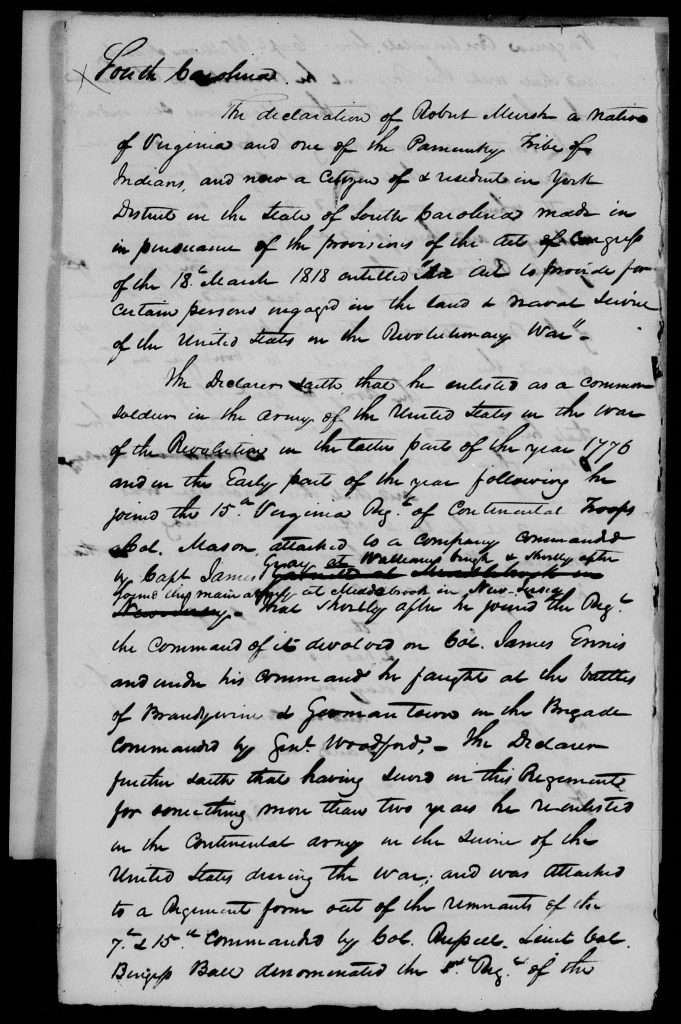 South Carolina.
The declaration of Robert Mursh a native
of Virginia and one of the Pamunky Tribe of
Indians, and now a Citizen of & resident in York
District in the State of South Carolina made in
in pursuance of the provisions of the Act of Congress
of the 18th March 1818 entitled "An Act to provide for
certain persons engaged in the land & naval Service
of the United States in the Revolutionary War"-
The Declarer saith that he enlisted as a common
soldier in the Army of the United States in the War
of the Revolution in the latter part of the year 1776
and in the Early part of the year following he
joined the 15th Virginia Regt of Continental Troops
Col. Mason, attached to a company commanded
by Capt James Gray at Williamsburgh & shortly after
joined the main army at Middlebrook in New-Jersey
New Jersey - that shortly after he joined the Regt
the command of it devolved on Col. James Ennis
and under his command he faught at the battles
of Brandywine & Germantown in the Brigade
commanded by Genl Woodford, - The Declarer
further saith that having served in this Regiment
for something more than two years he reenlisted
in the Continental army in the service of the
United States during the War; and was attached
to a Regiment form out of the remnants of the
7th & 15th commanded by Col. Russell. Lieut Col.
Burgess Ball denominated the Regt of the